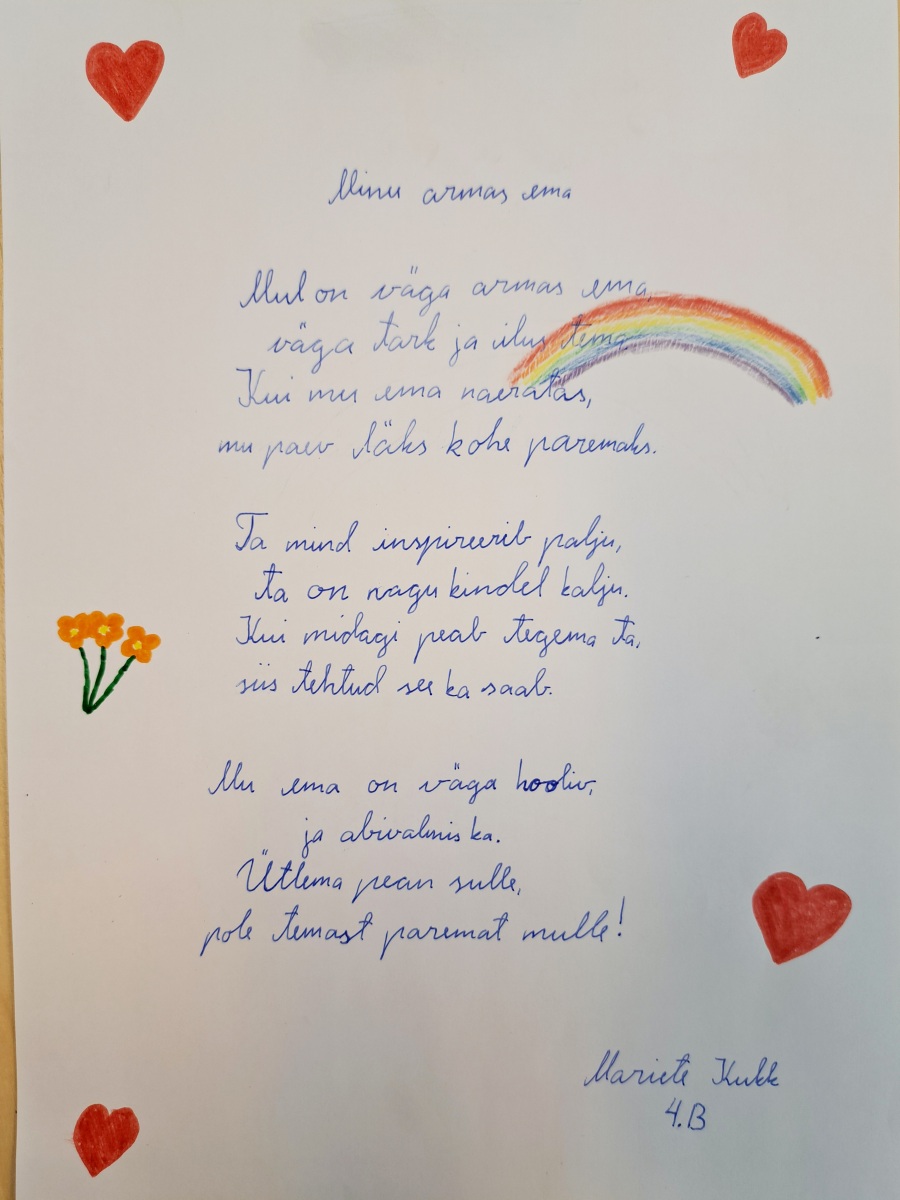 Minu armas ema
Mul on väga armas ema,
väga tark ja ilus tema
Kui mu ema naeratas,
mu paev läks kohe paremaks.
Ta mind inspireerib palju,
ta on nagu kindel kalju.
Kui midagi peab tegema ta,
siis tehtud see ka saab.
Mu ema on väga hooliv,
ja abivalmis ka.
Ütlema pean sulle,
pole temast paremat mulle!
Mariete Kukk
4.B